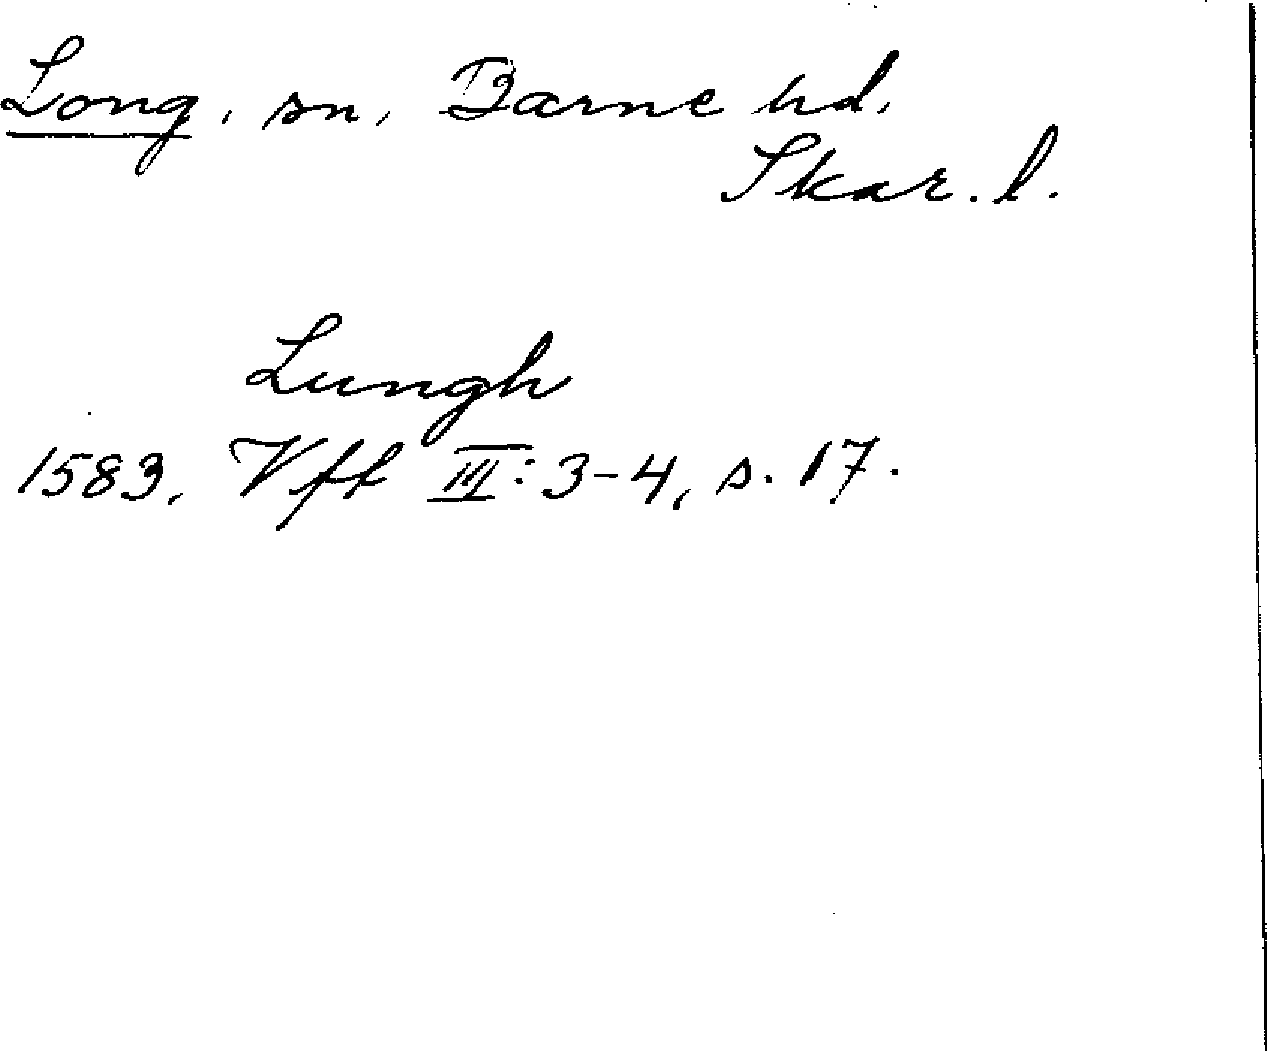 Long, sn, Barne hd.
Skar. l.
Lungh
1583, Vff III: 3-4, s. 17.